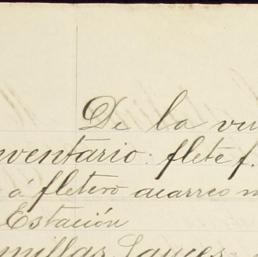 De la vu
nventario: flete f.
á fletero acarreo m
Estación
millas Sauces